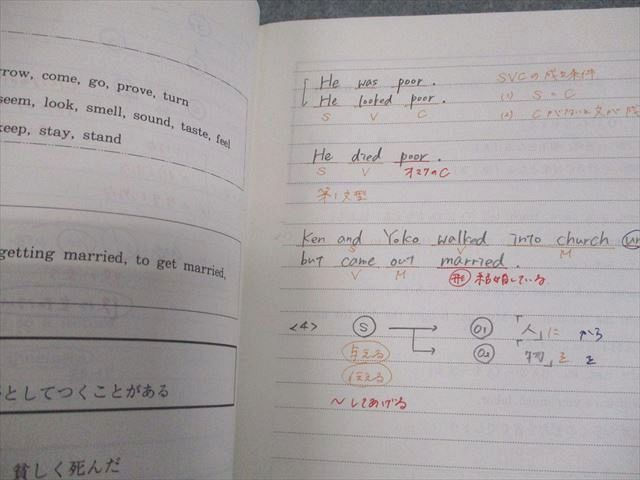 row, come, go, prove, turn
seem, look, smell, sound, taste, feel
keep, stay, stand
getting married, to get married,
としてつくことがある
貧しく死んだ
He was poor.
He looked poor.
S V C
SVCの成立条件
(1) S = C
(2) Cがないと文が成
He died poor.
S V オマケのC
第1文型
Ken and Yoko walked into church
S V M
but came out married.
V M 形 結婚している
<4> S → O1 「人」に から
O2 「物」を を
与える
伝える
～してあげる